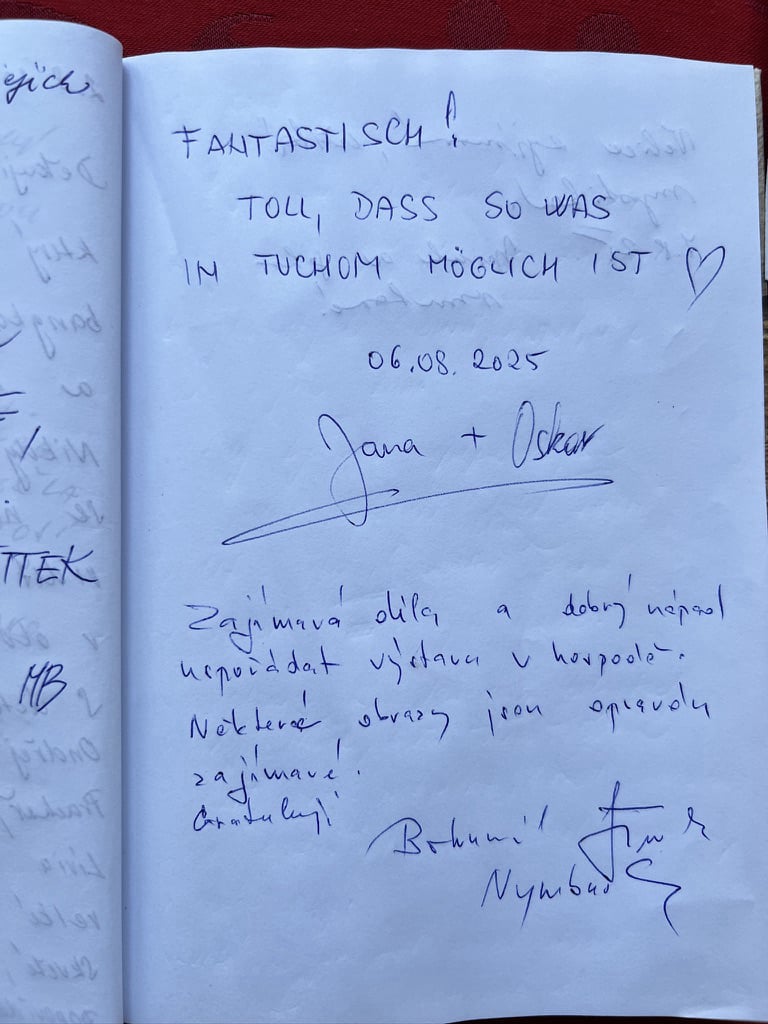 ejich
TTEK
MB
FANTASTISCH!
TOLL, DASS SO WAS
IN TUCHOM MÖGLICH IST ♡
06.08.2025
Jana + Oskar
Zajímavá díla a dobrý nápad
uspořádat výstavu v hospodě.
Některé obrazy jsou opravdu
zajímavé.
Gratuluji
Bohumil
Nymburk